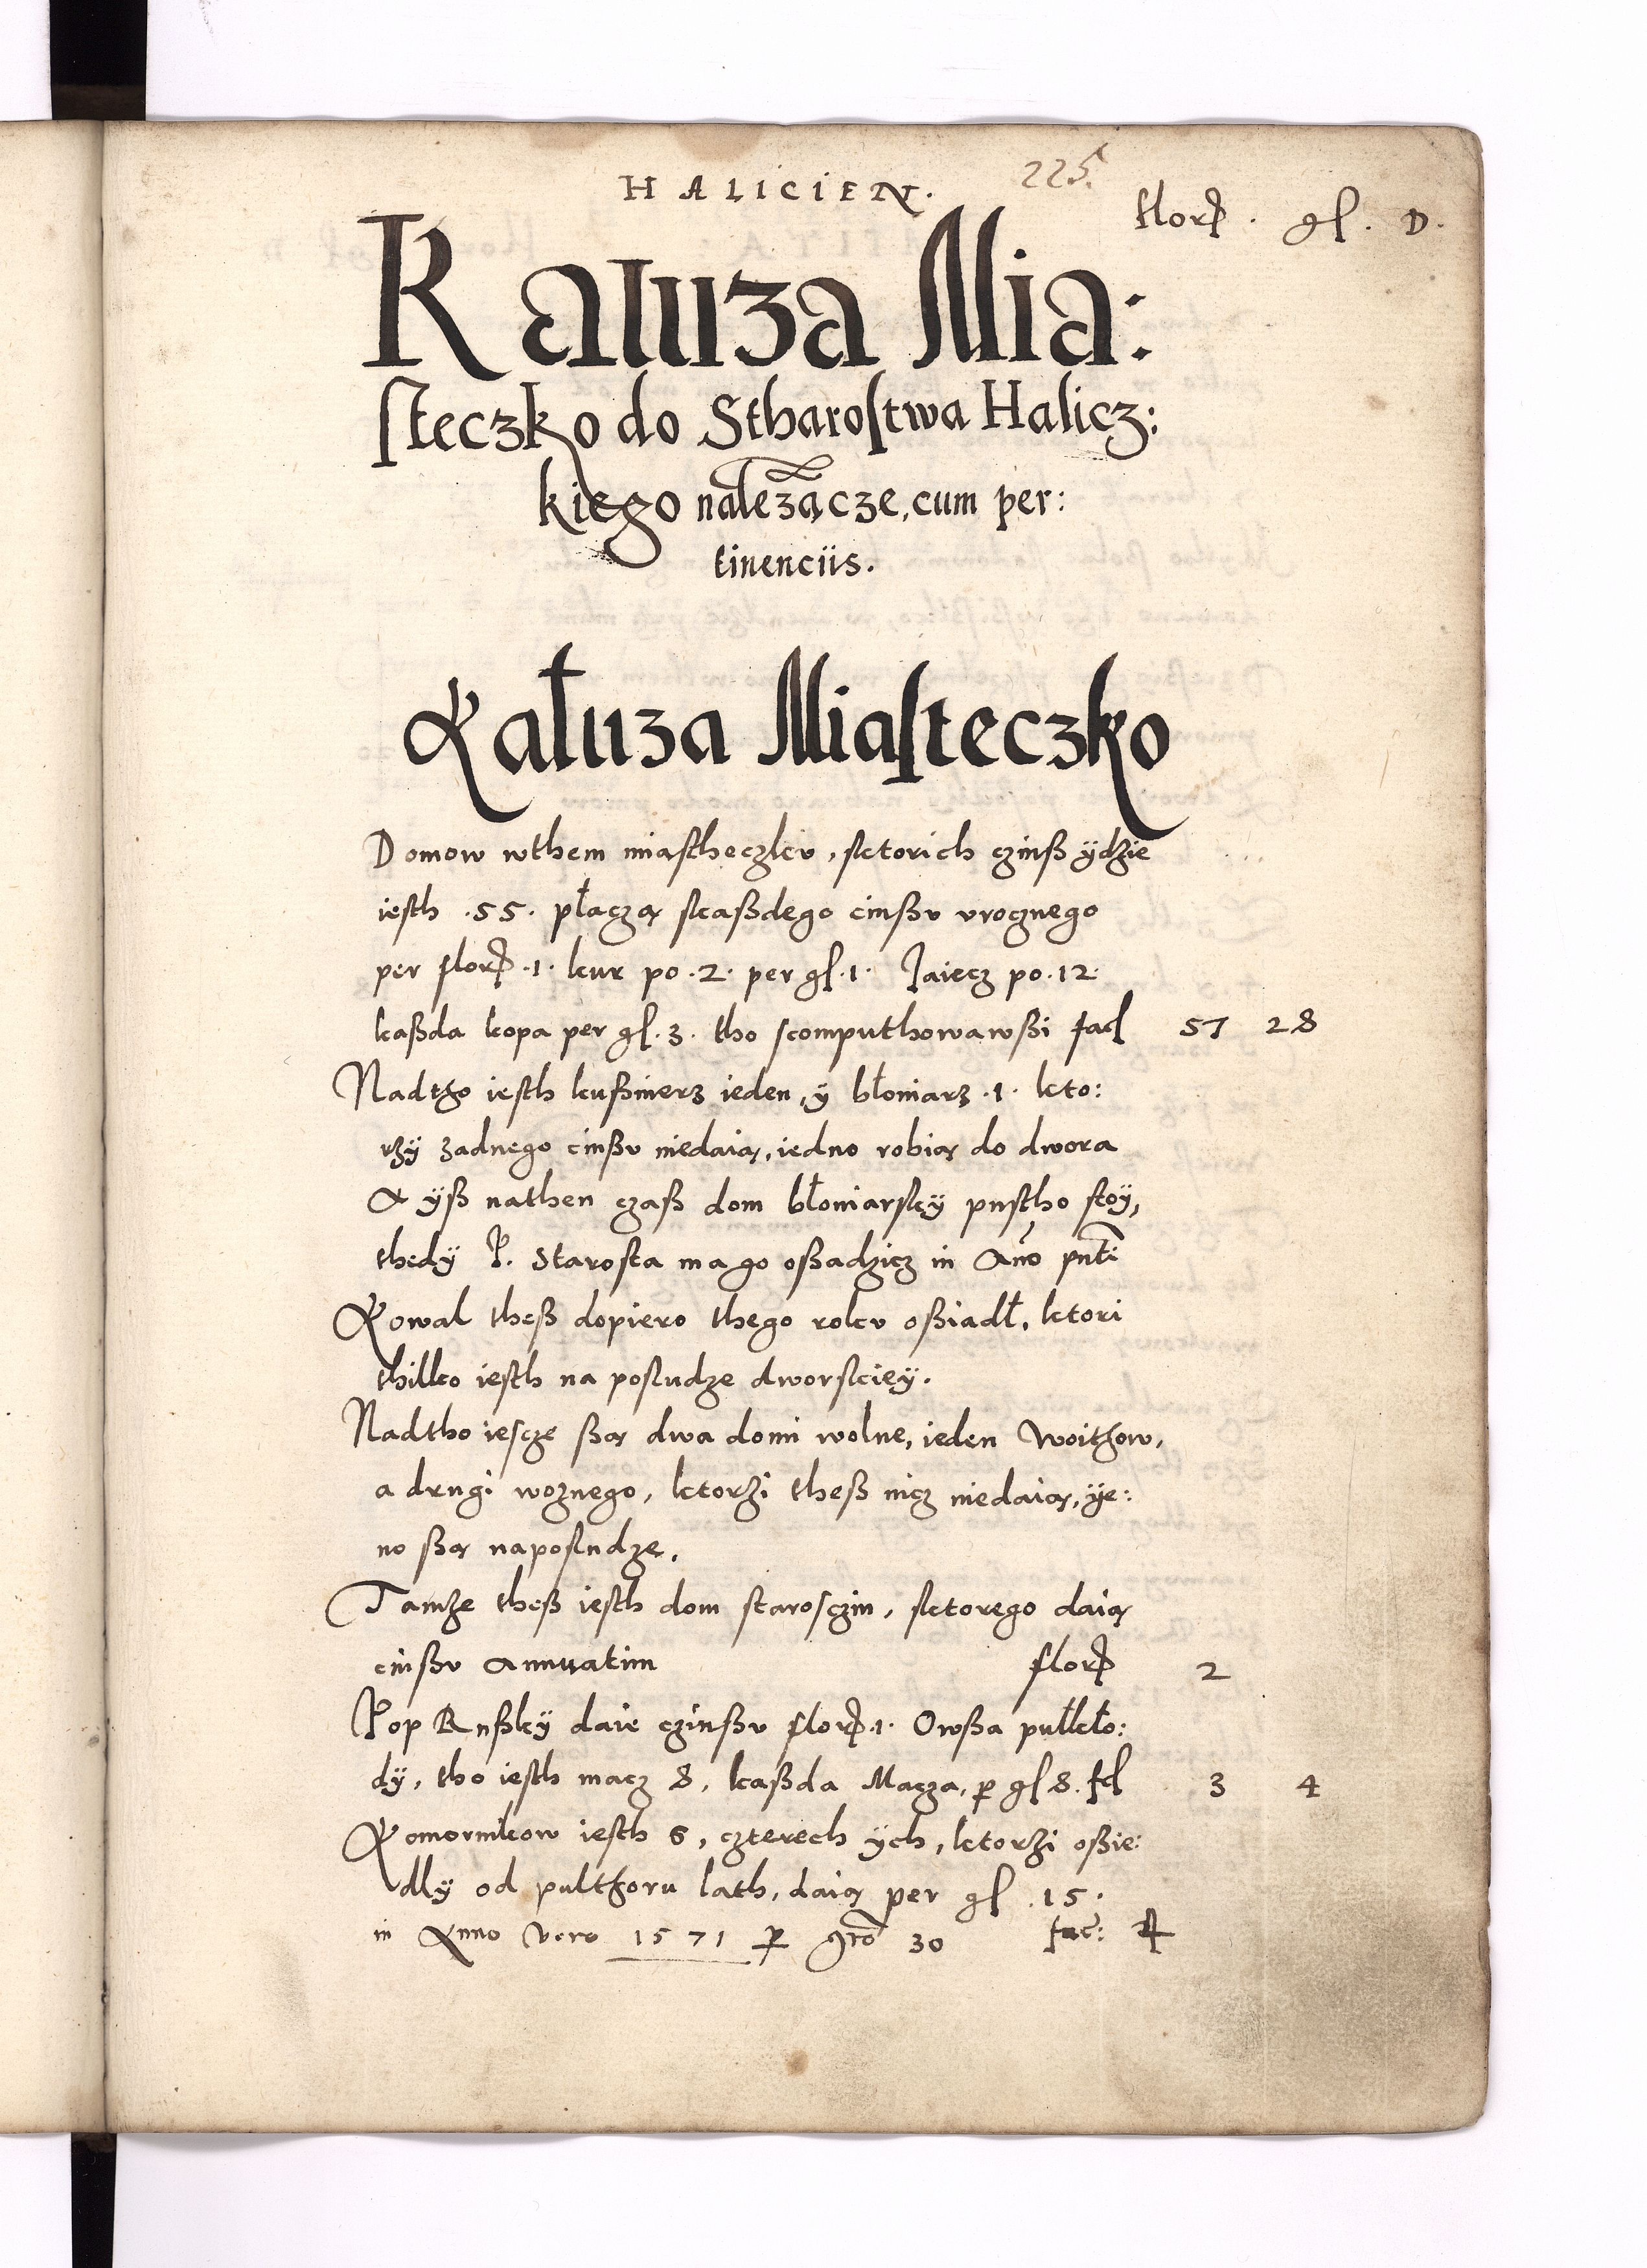 HALICIEN.
225.
flor. gl. D.
Kaluza Mia:
steczko do Stharostwa Halicz:
kiego należącze, cum per:
tinenciis.
Kałuza Miasteczko
Domow wthem miastheczku, sktorich czinß ydzie
iesth .55. płaczą skaßdego cinßu urocznego
per flor .1. kur po .2. per gl .1. Jaiecz po .12.
kaßda kopa per gl .3. tho scomputhowawßi facl 57 28
Nadtho iesth kußnierz ieden, y błoniarz .1. kto:
rzy zadnego cinßu niedaią, iedno robią do dwora
A yß nathen czaß dom błoniarsky pustho stoy,
thedy P. Starosta ma go oßadzicz in Ano pnti
Kowal theß dopiero thego roku oßiadł, ktori
thilko iesth na posludze dworskiey.
Nadtho iescze ßą dwa domi wolne, ieden Woithow,
a drugi woznego, ktorzi theß nicz niedaią, ye:
no ßą naposludze.
Tamże theß iesth dom staroscin, sktorego daią
cinßu annuatim flor 2
Pop Rußky daie czinßu flor .1. Owßa pułkło:
dy, tho iesth macz 8, kaßda Macza, p gl 8. fcl 3 4
Komornikow iesth 6, czterech ych, ktorzi oßie:
dly od pulthoru lath, daią per gl .15.
in Anno vero 1571 p gro 30 fac: 4